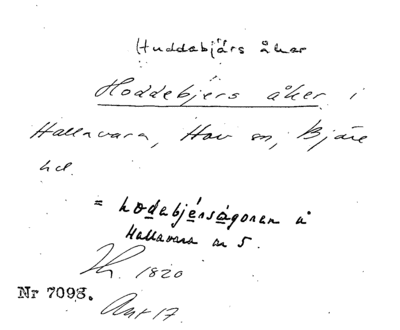 Huddebjärs åker
Hoddebjers åker i
Hallavara, Hov sn, Bjäre
hd.
= hodebjérságoren å
Hallavara nr 5.
1820
Nr 7098.
Ant 17